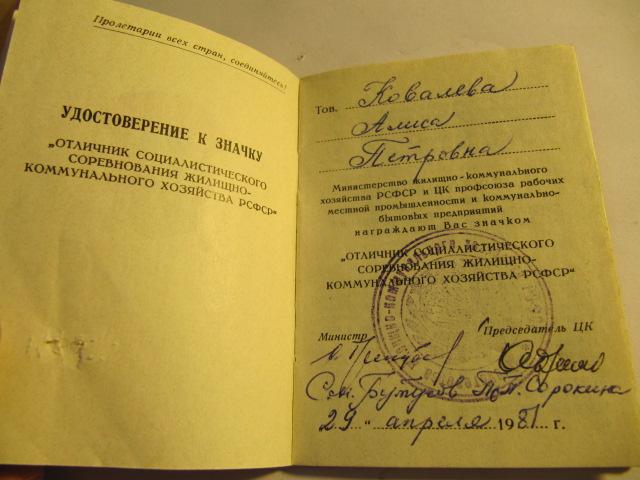 Пролетарии всех стран, соединяйтесь!
УДОСТОВЕРЕНИЕ К ЗНАЧКУ
„ОТЛИЧНИК СОЦИАЛИСТИЧЕСКОГО
СОРЕВНОВАНИЯ ЖИЛИЩНО-
КОММУНАЛЬНОГО ХОЗЯЙСТВА РСФСР“
Тов. Ковалева
Алиса
Петровна
Министерство жилищно-коммунального
хозяйства РСФСР и ЦК профсоюза рабочих
местной промышленности и коммунально-
бытовых предприятий
награждают Вас значком
„ОТЛИЧНИК СОЦИАЛИСТИЧЕСКОГО
СОРЕВНОВАНИЯ ЖИЛИЩНО-
КОММУНАЛЬНОГО ХОЗЯЙСТВА РСФСР“
Министр Председатель ЦК
Сорокина
29 „ апреля 1981 г.